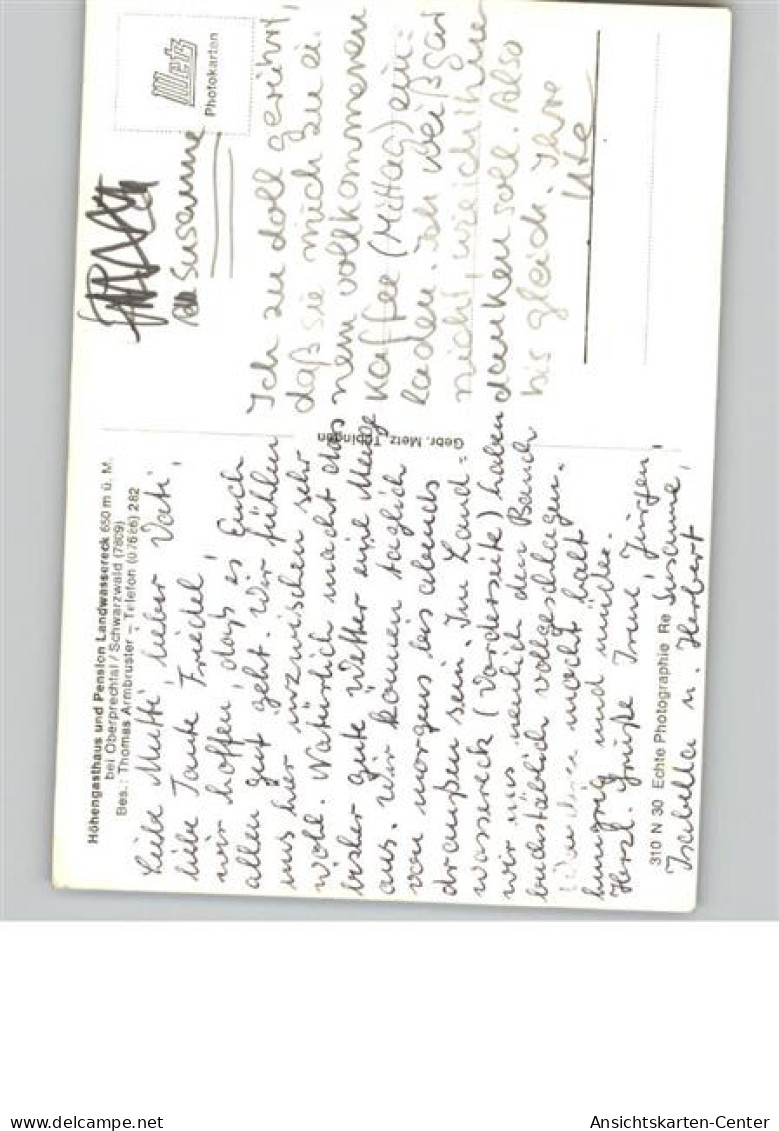 Höhengasthaus und Pension Landwassereck 650 m ü. M.
bei Oberprechtal / Schwarzwald (7809)
Bes.: Thomas Armbruster – Telefon (07686) 282
Liebe Mutti, lieber Vati,
liebe Tante Friedel,
wir hoffen, daß es Euch
allen gut geht. Wir fühlen
uns hier inzwischen sehr
wohl. Natürlich macht das
bisher gute Wetter eine Menge
aus. Wir können täglich
von morgens bis abends
draußen sein. Im Land=
wassereck (Vorderseite) haben
wir uns neulich den Bauch
buchstäblich vollgeschlagen.
macht halt
hungrig und müde.
Herzl. Grüße Irene, Jürgen,
Susanne,
Isabella u. Herbert
310 N 30 Echte Photographie Re
Gebr. Metz, Tübingen
Metz
Photokarten
Susanne
Ich zu doll gerührt,
daß sie mich zu ei
nem vollkommenen
Kaffee (Mittag) ein=
laden. Ich weiß gar
nicht, wie ich Ihnen
danken soll. Also
bis gleich. Ihre
Ute
delcampe.net
Ansichtskarten-Center